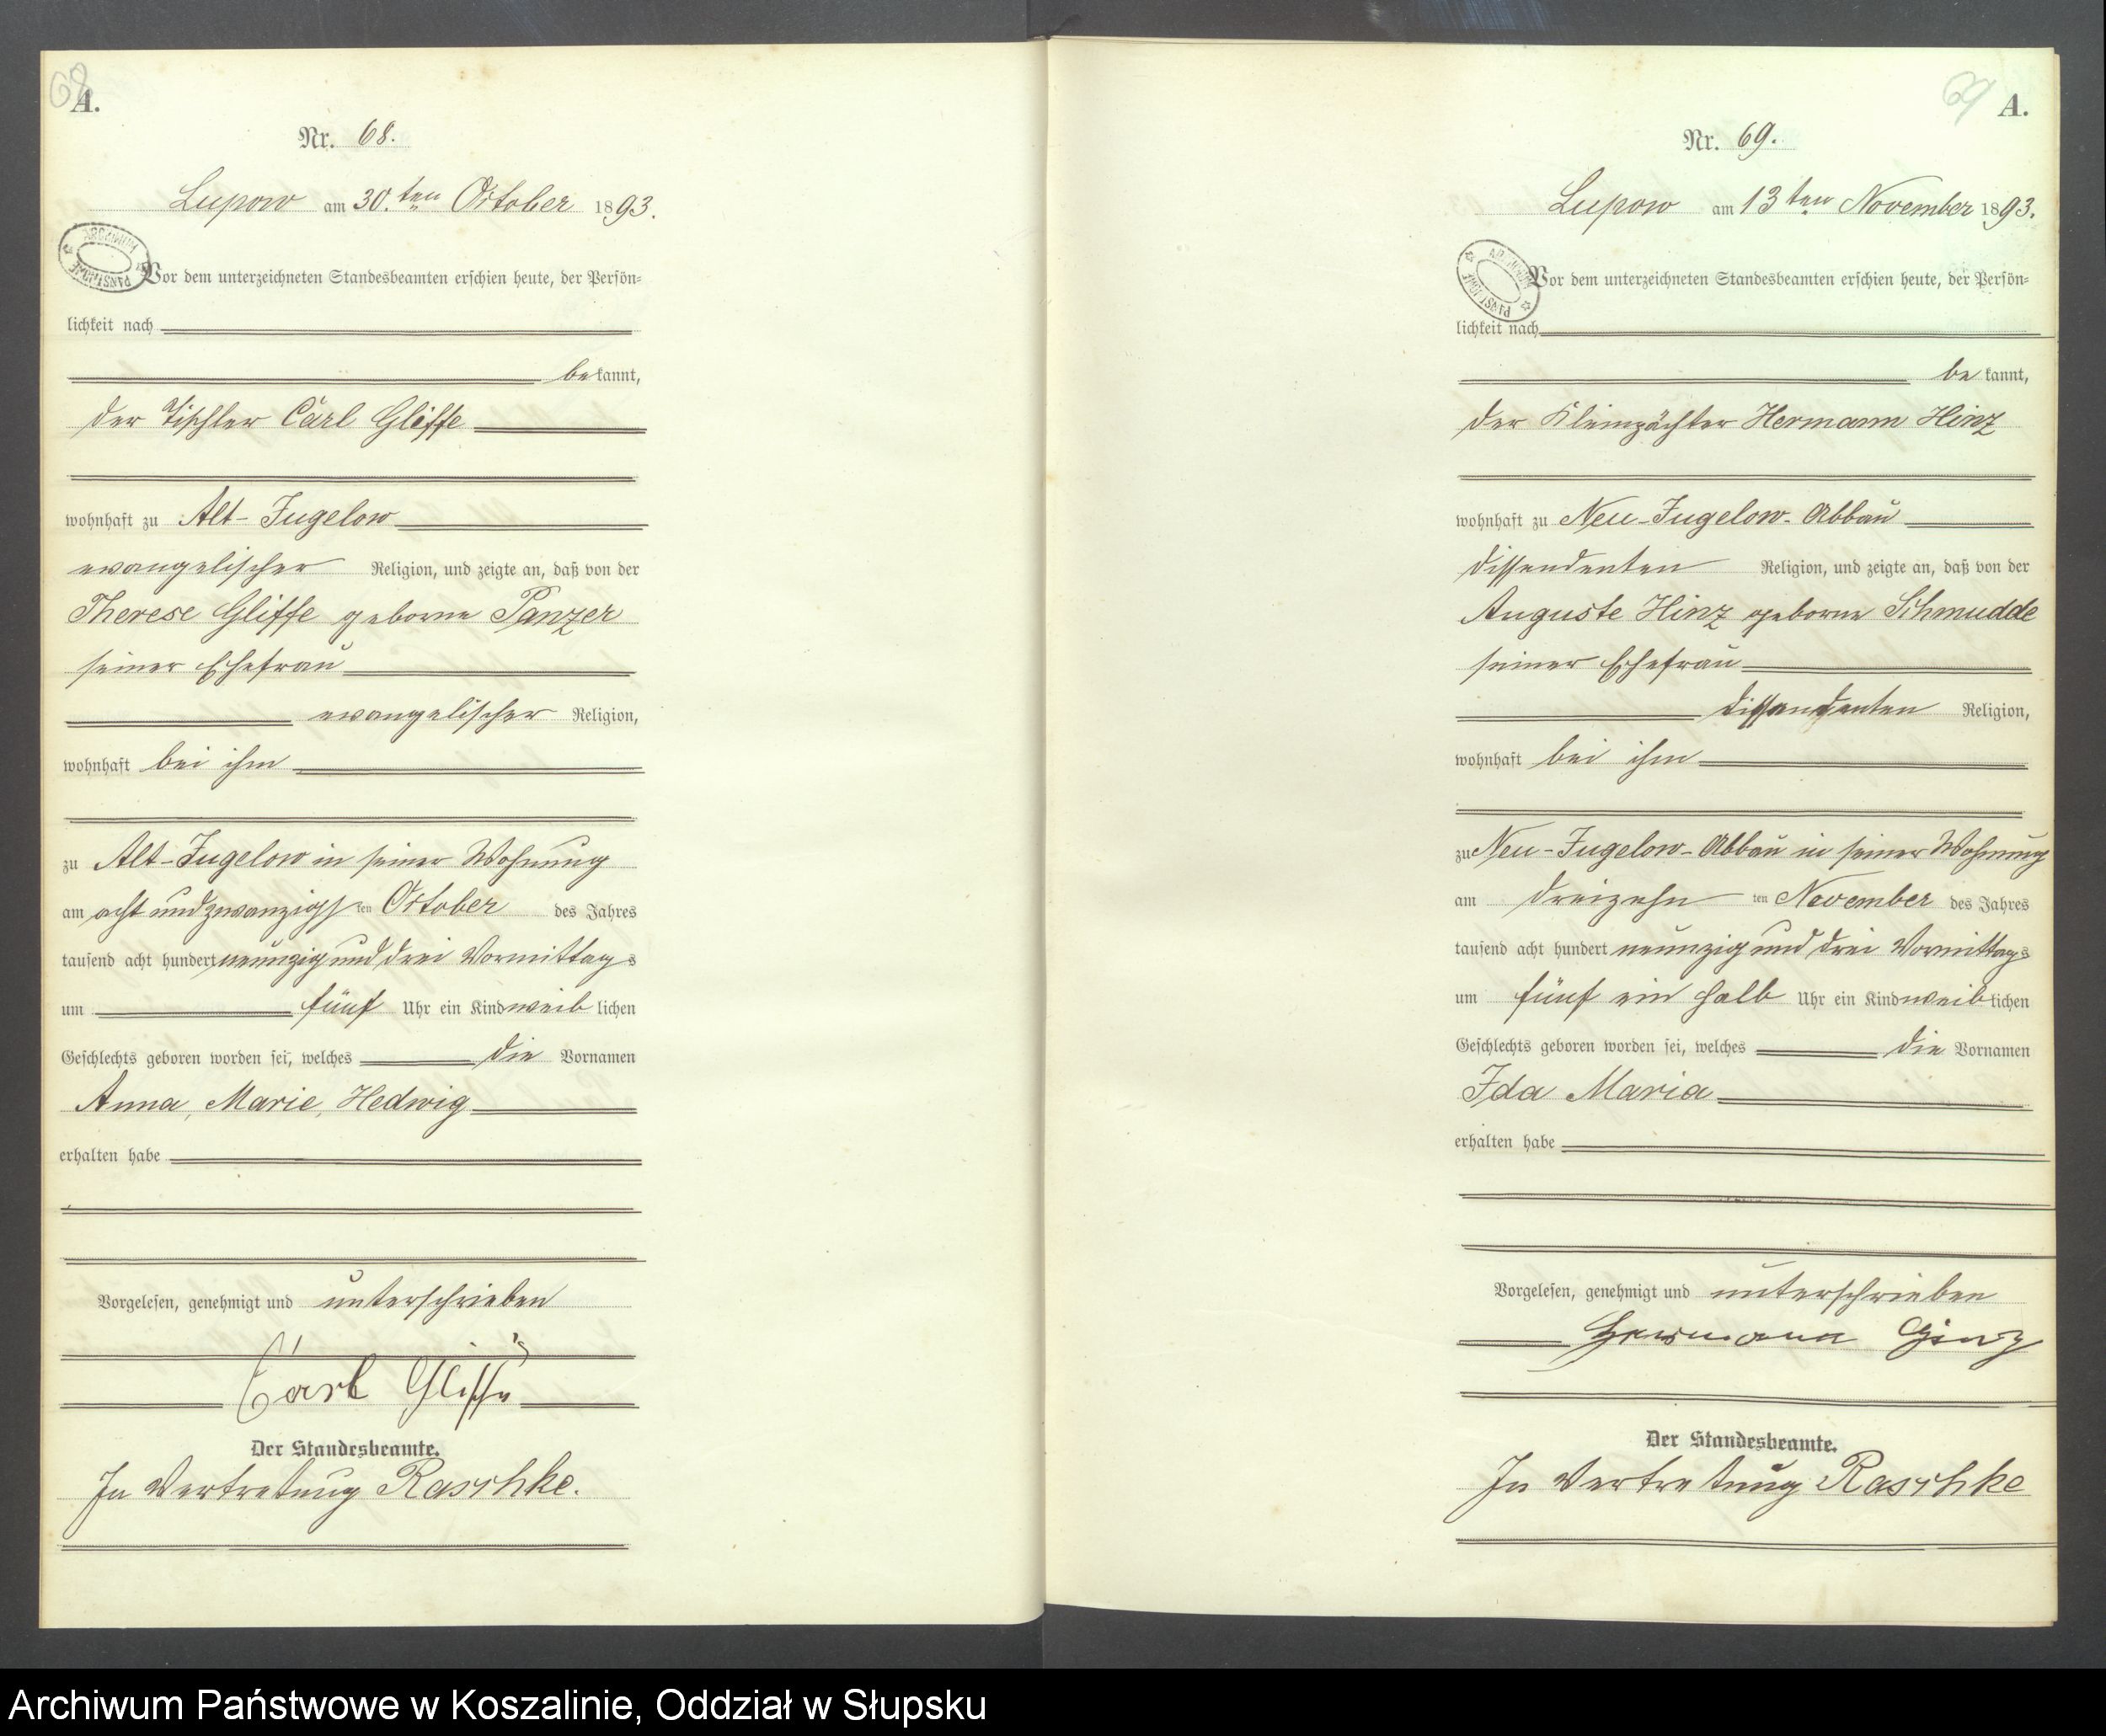 68
A.
Nr. 68.
Lupow am 30.ten October 1893.
ARCHIWUM PAŃSTWOWE
Vor dem unterzeichneten Standesbeamten erschien heute, der Persön=
lichkeit nach
bekannt,
der Tischler Carl Glisse
wohnhaft zu Alt-Jugelow
evangelischer Religion, und zeigte an, daß von der
Therese Glisse geborne Panzer
seiner Ehefrau
evangelischer Religion,
wohnhaft bei ihm
zu Alt-Jugelow in seiner Wohnung
am acht und zwanzigsten October des Jahres
tausend acht hundert neunzig und drei Vormittags
um fünf Uhr ein Kind weiblichen
Geschlechts geboren worden sei, welches die Vornamen
Anna, Marie, Hedwig
erhalten habe
Vorgelesen, genehmigt und unterschrieben
Carl Glisse
Der Standesbeamte.
In Vertretung Raschke.
69
A.
Nr. 69.
Lupow am 13ten November 1893.
ARCHIWUM PAŃSTWOWE
Vor dem unterzeichneten Standesbeamten erschien heute, der Persön=
lichkeit nach
bekannt,
der Kleinpächter Hermann Hinz
wohnhaft zu Neu-Jugelow-Abbau
dissendenten Religion, und zeigte an, daß von der
Auguste Hinz geborne Schmudde
seiner Ehefrau
dissendenten Religion,
wohnhaft bei ihm
zu Neu-Jugelow-Abbau in seiner Wohnung
am dreizehnten November des Jahres
tausend acht hundert neunzig und drei Vormittags
um fünf ein halb Uhr ein Kind weiblichen
Geschlechts geboren worden sei, welches die Vornamen
Ida Maria
erhalten habe
Vorgelesen, genehmigt und unterschrieben
Hermann Hinz
Der Standesbeamte.
In Vertretung Raschke
Archiwum Państwowe w Koszalinie, Oddział w Słupsku